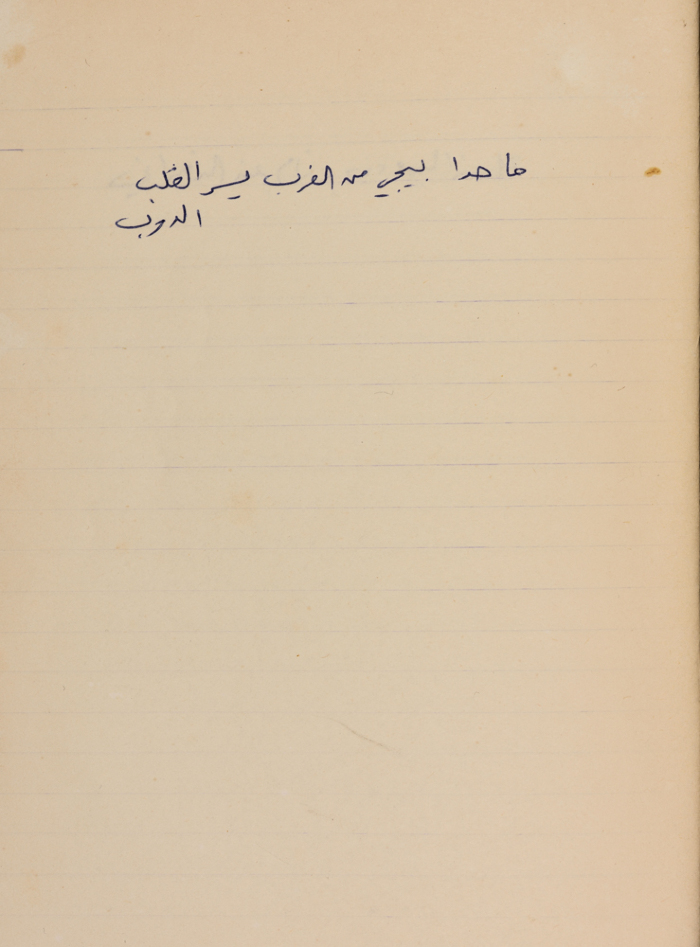 ما حدا بيجي من الغرب يسر القلب
الا وب